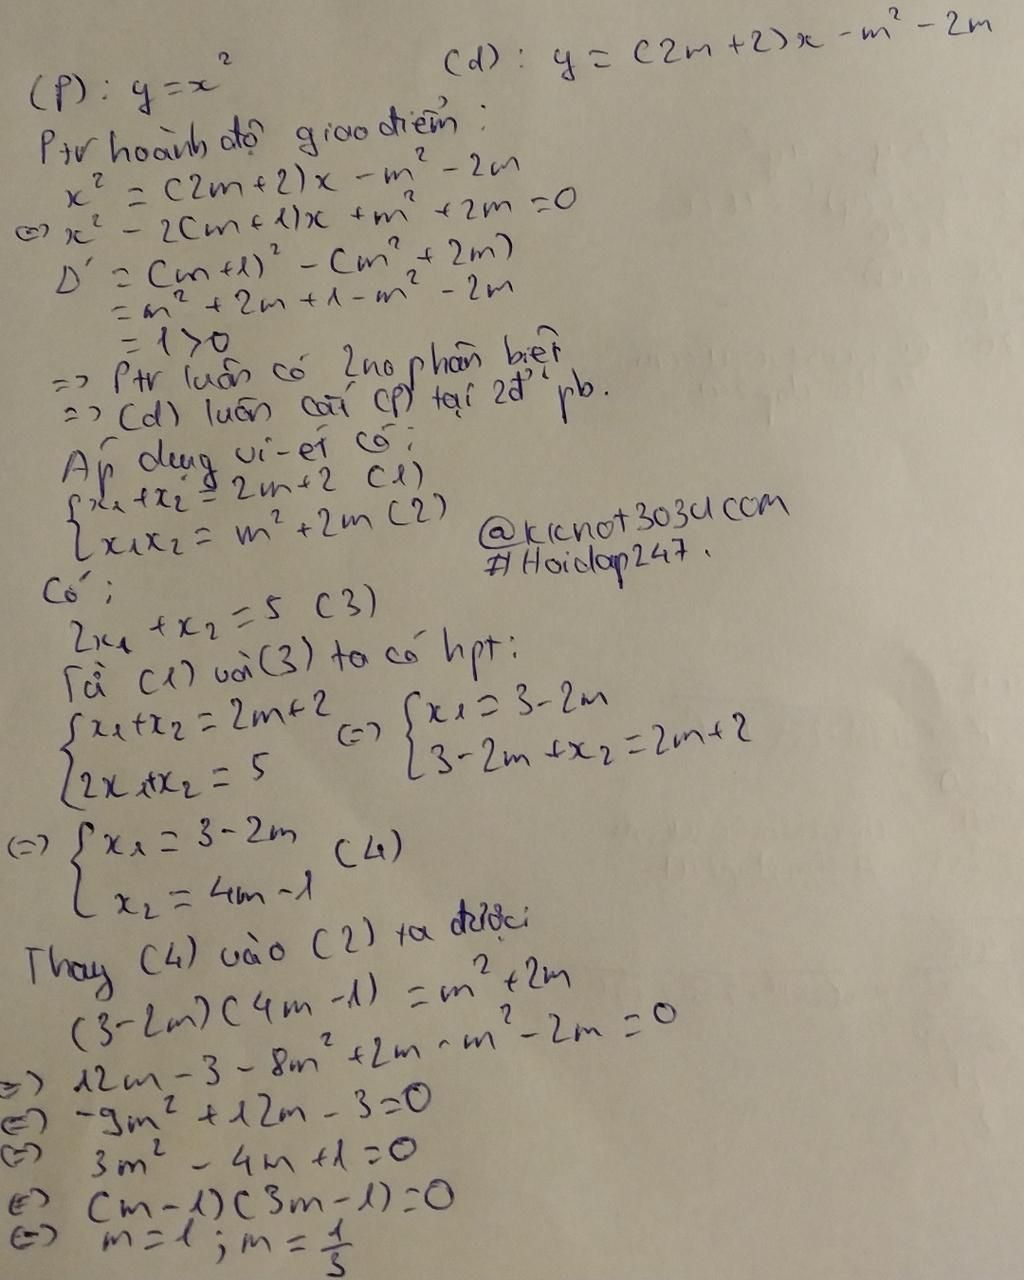 (P): y = x² (d): y = (2m+2)x - m² - 2m
Ptr hoành độ giao điểm:
x² = (2m+2)x - m² - 2m
<=> x² - 2(m+1)x + m² + 2m = 0
Δ' = (m+1)² - (m² + 2m)
= m² + 2m + 1 - m² - 2m
= 1 > 0
=> Ptr luôn có 2no phân biệt
=> (d) luôn cắt (P) tại 2đ' pb.
Áp dụng vi-ét có:
{ x₁ + x₂ = 2m+2 (1)
{ x₁x₂ = m² + 2m (2)
@kknot303ucom
#Hoidap247.
Có:
2x₁ + x₂ = 5 (3)
Từ (1) và (3) ta có hpt:
{ x₁ + x₂ = 2m+2 <=> { x₁ = 3-2m
{ 2x₁ + x₂ = 5 { 3-2m + x₂ = 2m+2
<=> { x₁ = 3-2m (4)
{ x₂ = 4m-1
Thay (4) vào (2) ta được:
(3-2m)(4m-1) = m² + 2m
=> 12m - 3 - 8m² + 2m - m² - 2m = 0
<=> -9m² + 12m - 3 = 0
<=> 3m² - 4m + 1 = 0
<=> (m-1)(3m-1) = 0
<=> m = 1 ; m = 1/3